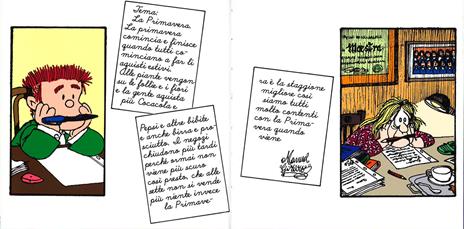 Tema:
La Primavera.
La primavera
comincia e finisce
quando tutti co=
minciano a far li
aquisti estivi.
Alle piante vengon
su le follie e i fiori
e la gente aquista
più Cocacola e
Pepsi e altre bibite
e anche birra e pro=
sciutto. Il negozi
chiudono più tardi
perché ormai non
viene più scuro
così presto, che alle
sette non si vende
più niente invece
la Primave=
ra è la staggione
migliore così
siamo tutti
molto contenti
con la Prima=
vera quando
viene
Maestra